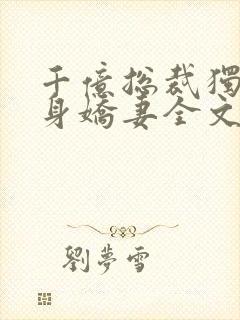 千億総裁獨
身嬌妻全文
劉夢雪